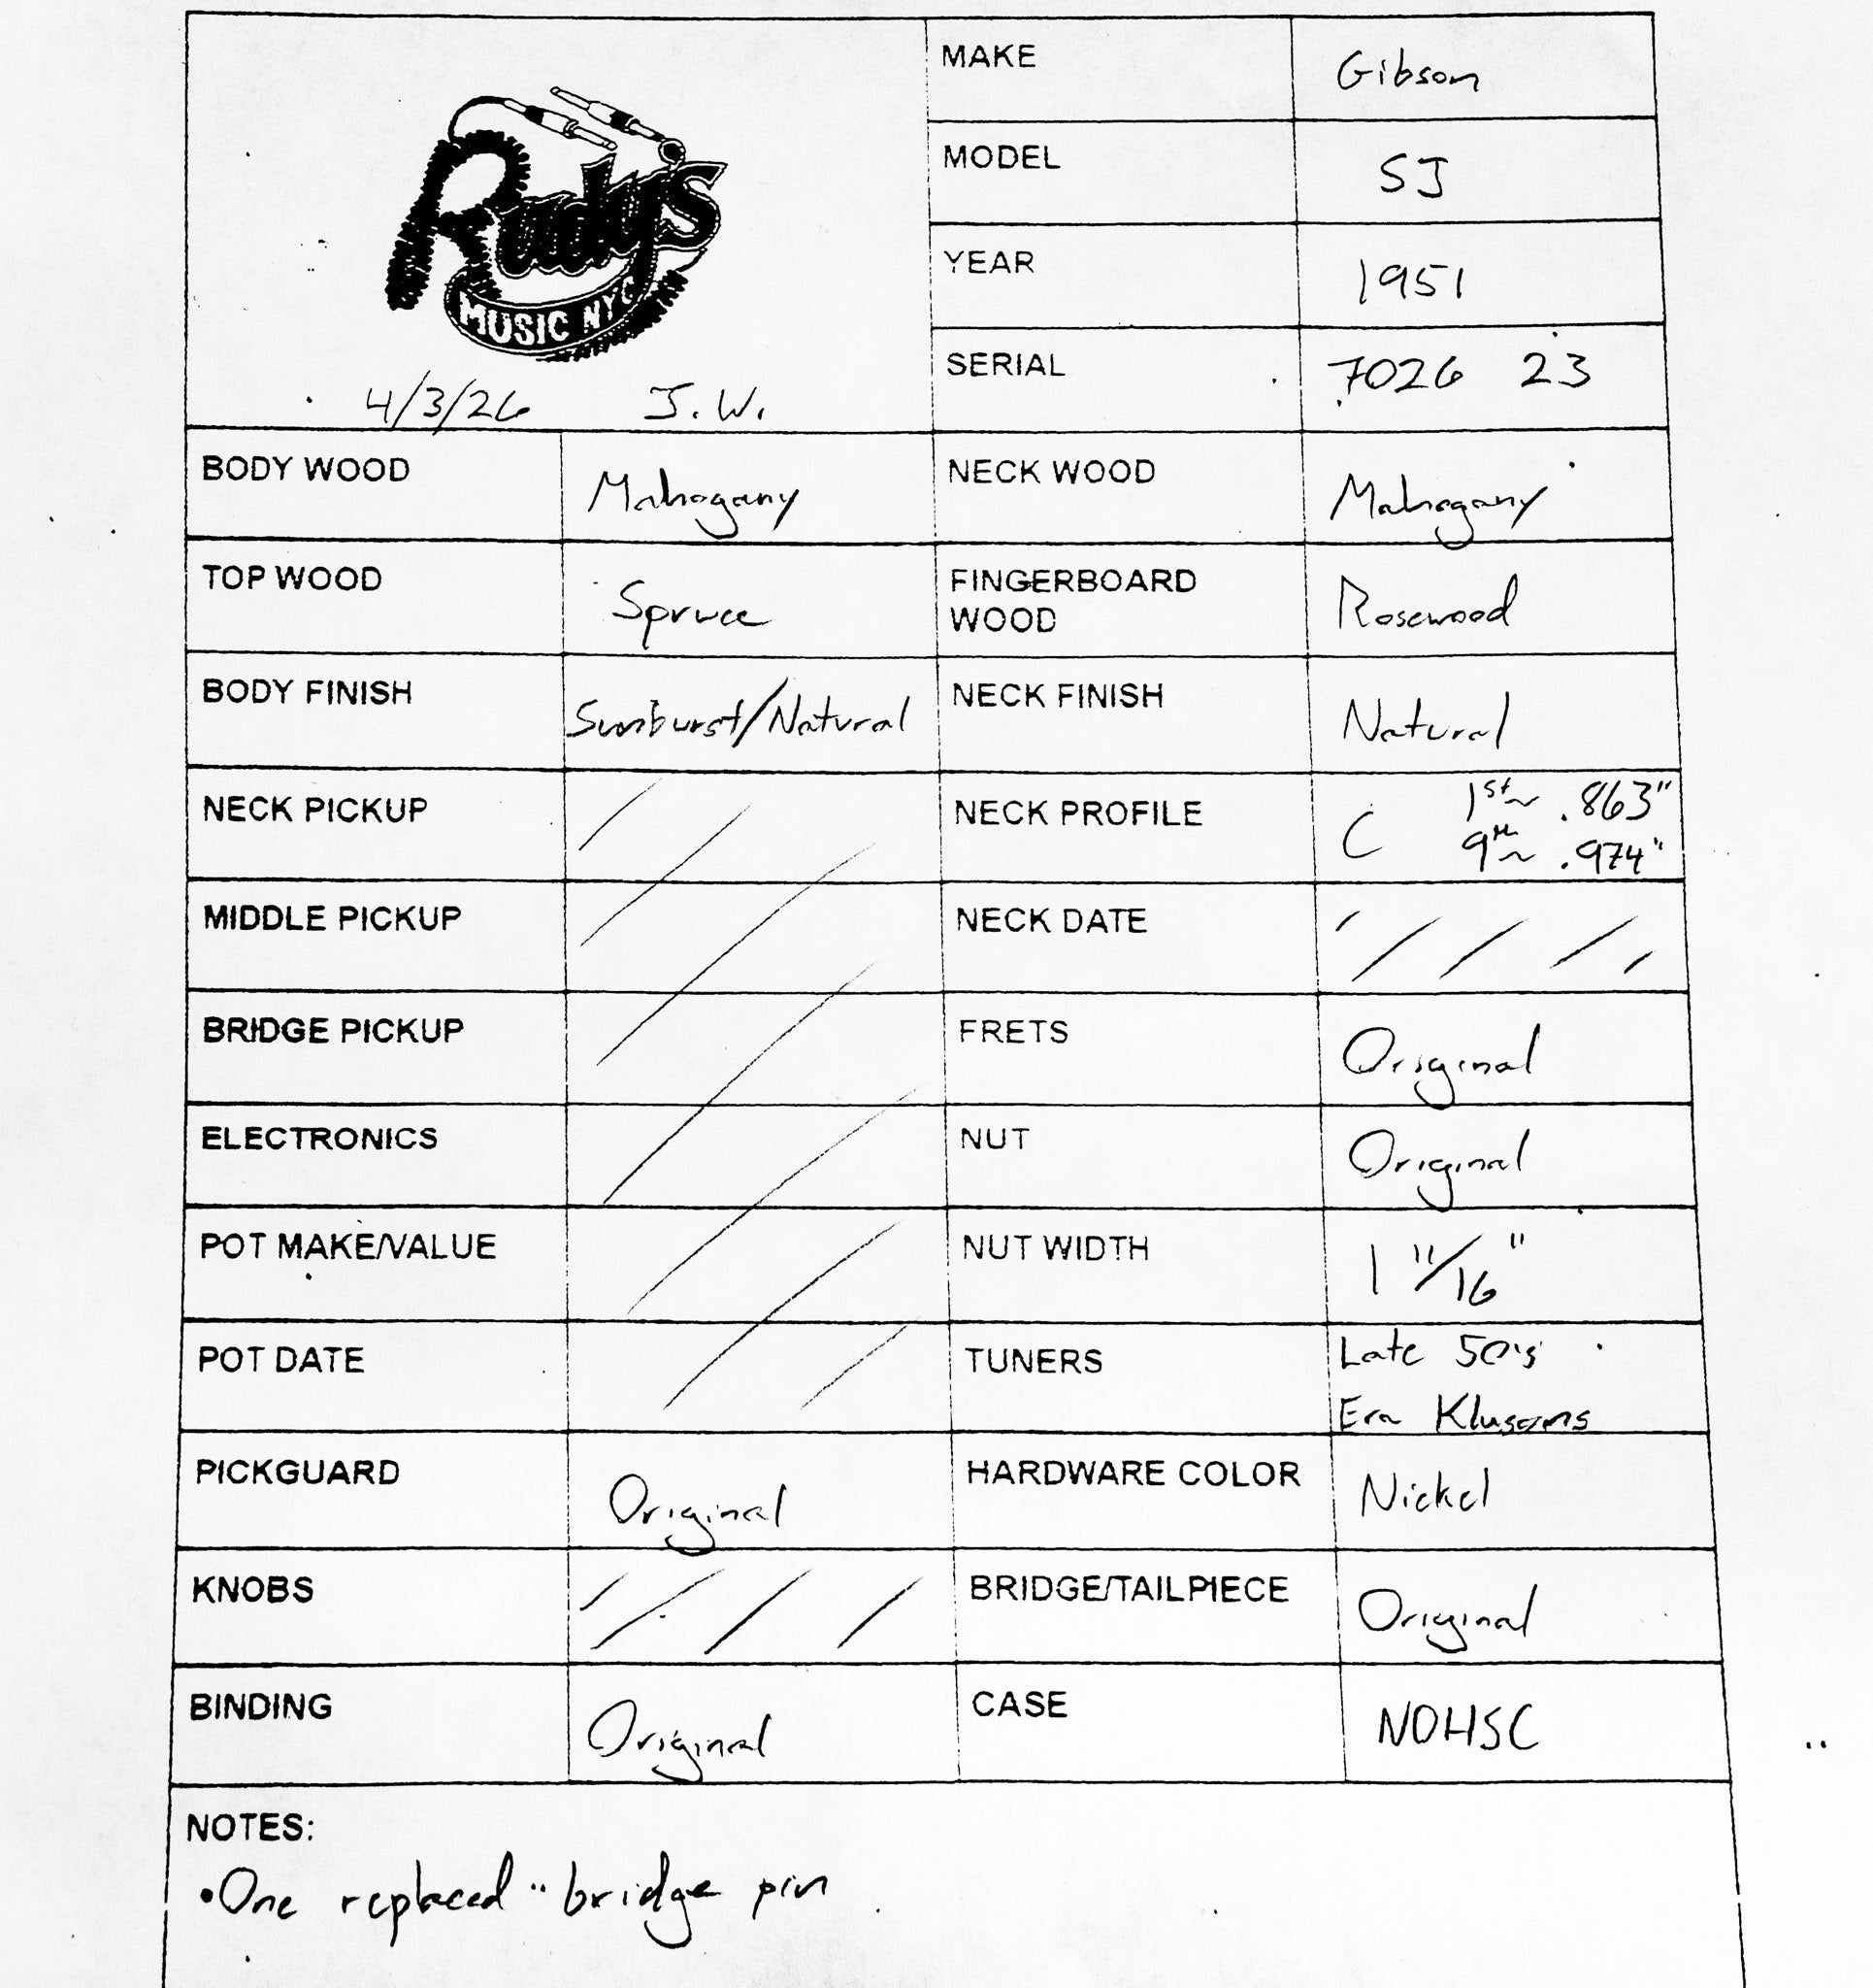 Rudy's
MUSIC NYC
4/3/26 J.W.
MAKE Gibson
MODEL SJ
YEAR 1951
SERIAL 7026 23
BODY WOOD Mahogany NECK WOOD Mahogany
TOP WOOD Spruce FINGERBOARD WOOD Rosewood
BODY FINISH Sunburst/Natural NECK FINISH Natural
NECK PICKUP NECK PROFILE C 1st~ .863"
9th~ .974"
MIDDLE PICKUP NECK DATE
BRIDGE PICKUP FRETS Original
ELECTRONICS NUT Original
POT MAKE/VALUE NUT WIDTH 1 11/16"
POT DATE TUNERS Late 50's
Era Klusons
PICKGUARD Original HARDWARE COLOR Nickel
KNOBS BRIDGE/TAILPIECE Original
BINDING Original CASE NOHSC
NOTES:
•One replaced bridge pin